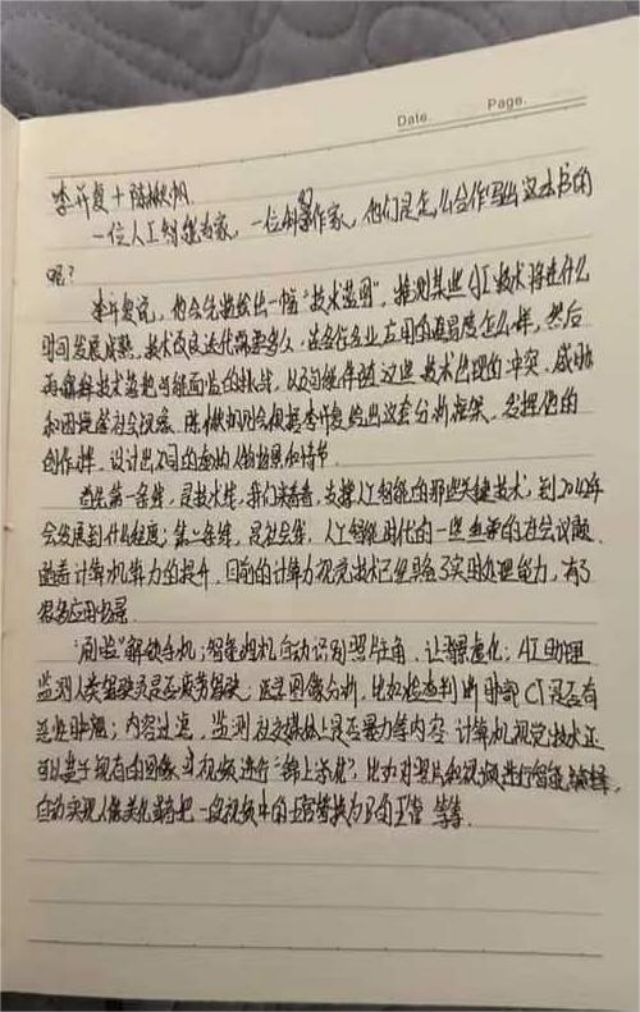 Date.
Page.
李开复+陈楸帆
一位人工智能专家，一位科幻作家，他们是怎么合作写出这本书的
呢？
李开复说，他会先描绘出一幅“技术蓝图”，推测某些AI技术将在什么
时间发展成熟，技术改良迭代需要多久，在各行各业应用的难易度怎么样，然后
再解释技术落地可能面临的挑战，以及可能伴随这些技术出现的冲突、威胁
和困境等社会现象。陈楸帆则会根据李开复给出这套分析框架，发挥他的
创作，设计出不同的虚构人物场景和情节。
首先第一条线，是技术线，我们来看看，支撑人工智能的那些关键技术，到2042年
会发展到什么程度；第二条线，是社会线，人工智能时代的一些重要的社会议题。
随着计算机算力的提升，目前的计算力视觉技术已经具备了实时处理能力，有了
很多应用场景
“刷脸”解锁手机；智能相机自动识别照片主角，让背景虚化；AI助理
监测人类驾驶员是否疲劳驾驶；医学图像分析，比如检查判断肺部CT是否有
恶性肿瘤；内容过滤，监测社交媒体上是否暴力等内容。计算机视觉技术还
可以基于现有的图像或视频进行“锦上添花”，比如对照片和视频进行智能编辑，
自动实现人像美化或者把一段视频中的五官替换为B的五官等等。